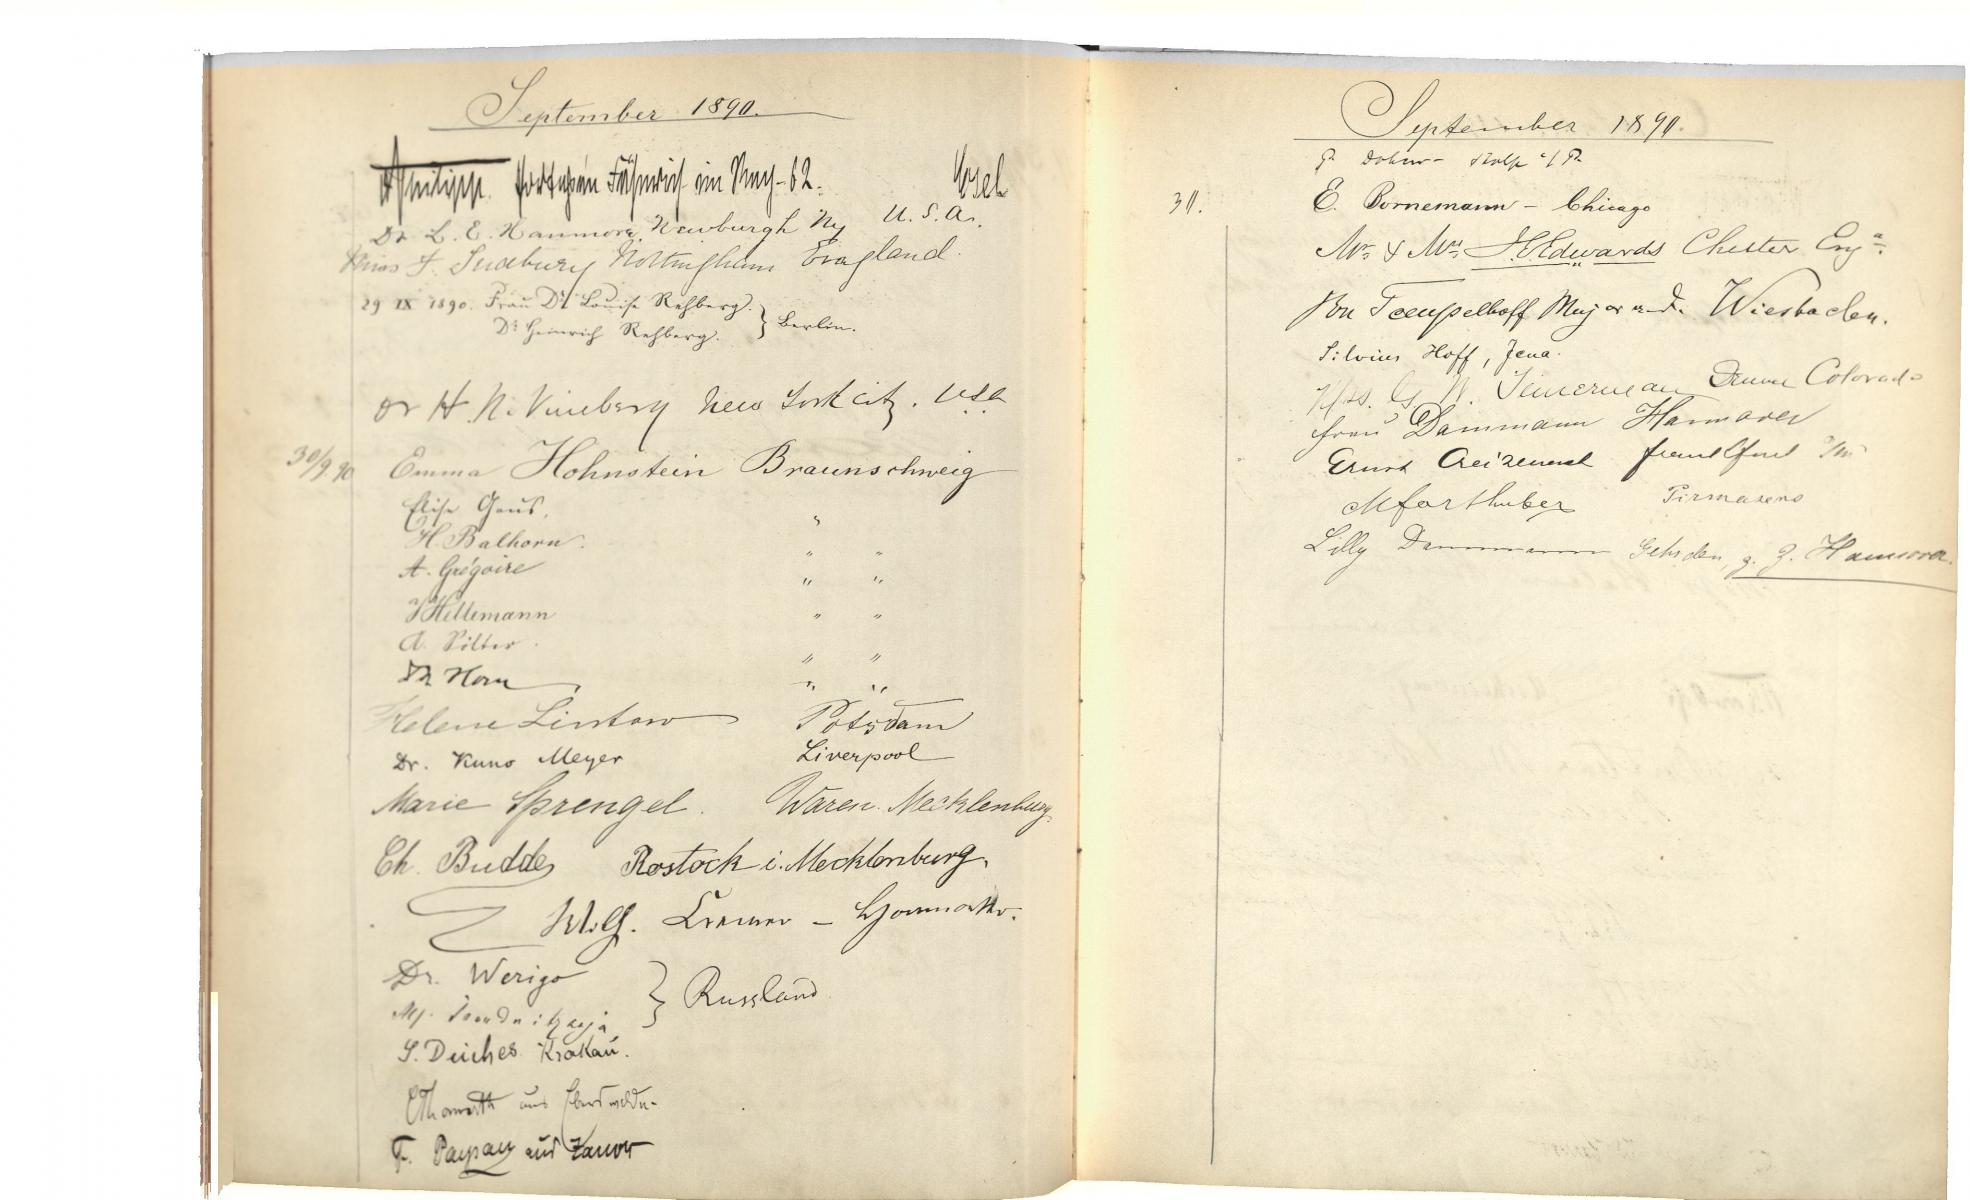 September 1890.
Philipp. Fähnrich im Rny-62. Cosel
Dr L. E. Hanmore, Newburgh Ny U.S.A.
Miss F. Sudbury Nottingham England.
29 IX 1890. Frau Dr Louise Rehberg.
Dr Heinrich Rehberg. } Berlin.
Dr H. N. Vineberg New York City. USA
30/9.90 Emma Hohnstein Braunschweig
Elise Gaus. "
H. Balhorn. " "
A. Grégoire " "
Hillemann " "
A. " "
Horn " "
Helene Lintow Potsdam
Dr. Kuno Meyer Liverpool
Marie Sprengel. Waren. Mecklenburg.
Ch. Budde Rostock i. Mecklenburg.
Dr. Werigo } Russland
M.
S. Deiches Krakau.
aus
F. aus Zanow
September 1890.
Stolp i/P.
30. E. Bornemann – Chicago
Mr & Mrs J. Edwards Chester Engd.
Von Tempelhoff Major a. D. Wiesbaden.
Silvius Hoff, Jena.
Mrs. G. W. Denver Colorado
Frau Dammann Hannover
Ernst Creizenach Frankfurt a/m
M Forthuber Pirmasens
Lilly Dammann Gehrden, Hannover.